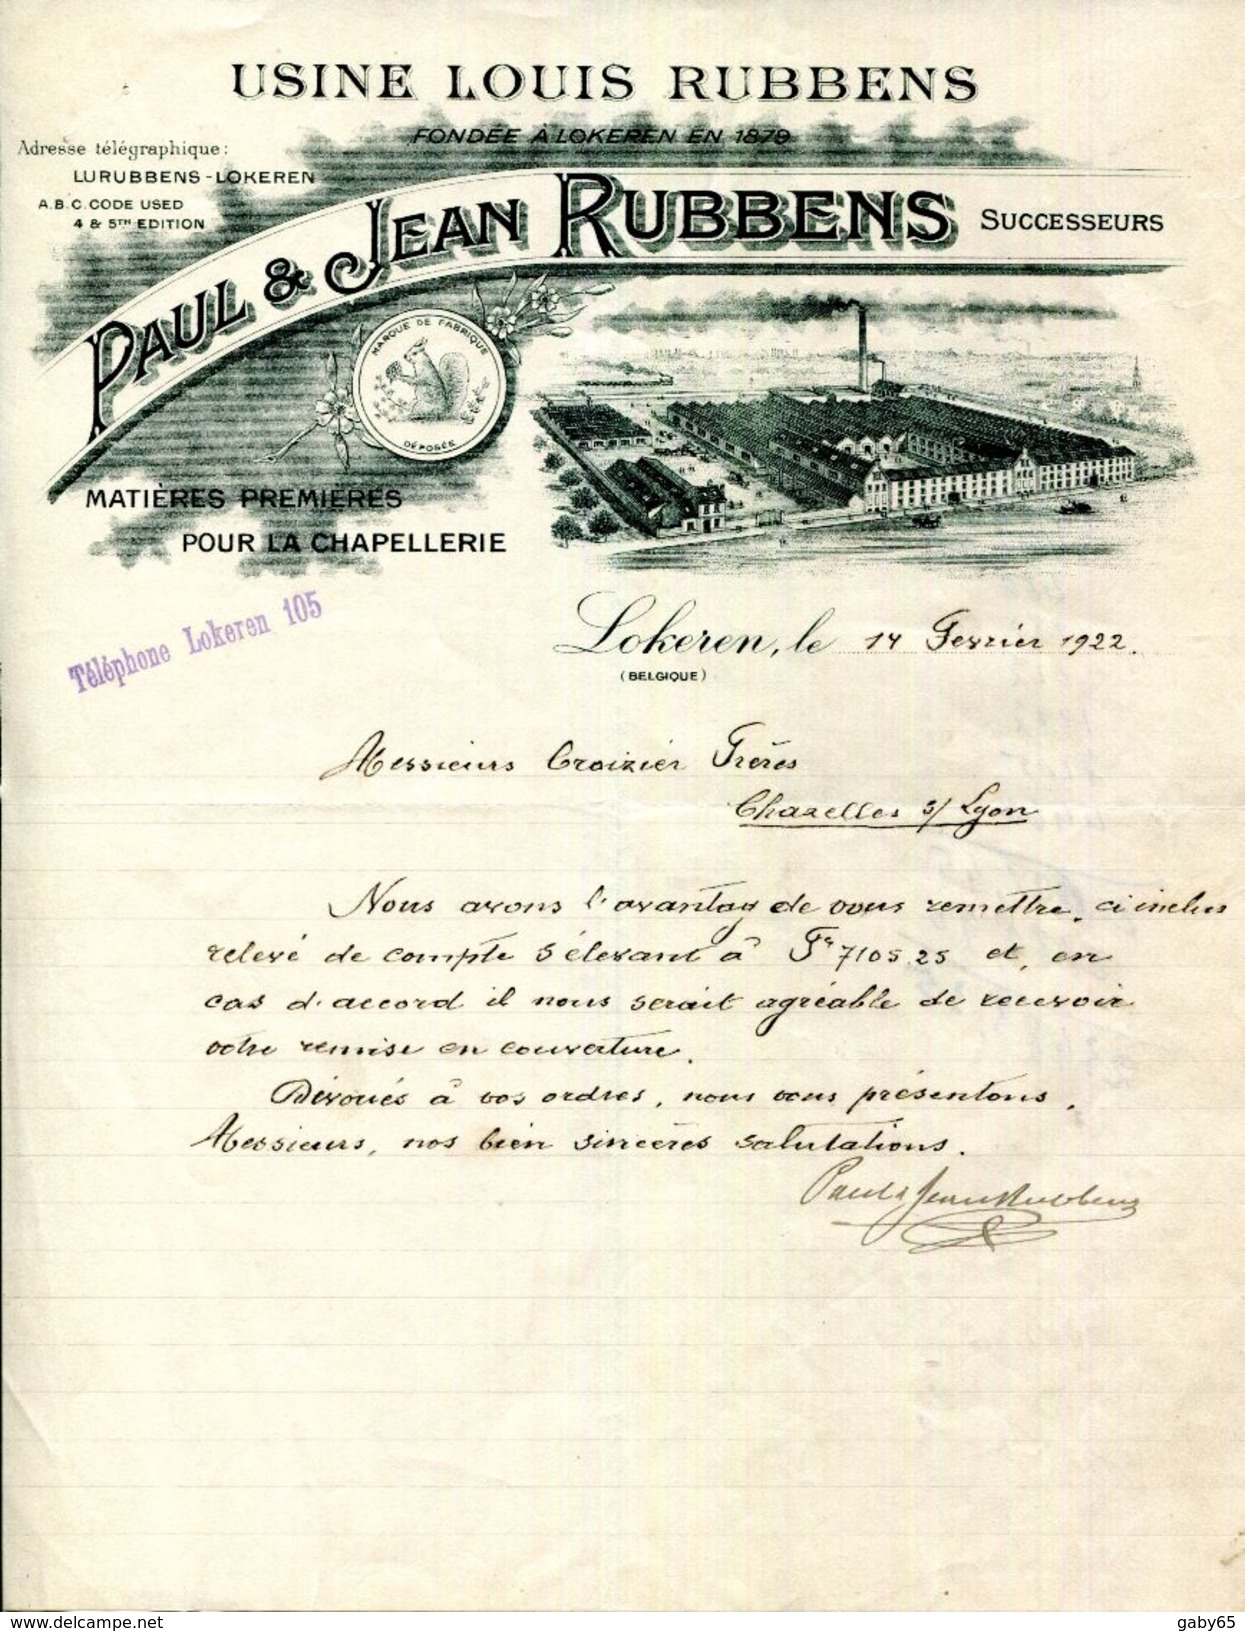 USINE LOUIS RUBBENS
FONDÉE À LOKEREN EN 1879
Adresse télégraphique:
LURUBBENS-LOKEREN
A.B.C. CODE USED
4 & 5TH EDITION
PAUL & JEAN RUBBENS SUCCESSEURS
MARQUE DE FABRIQUE
DÉPOSÉE
MATIÈRES PREMIÈRES
POUR LA CHAPELLERIE
Téléphone Lokeren 105
Lokeren, le 14 Fevrier 1922.
(BELGIQUE)
Messieurs Croizier Frères
Chazelles s/ Lyon
Nous avons l'avantag de vous remettre, ci inclus
relevé de compte s'élevant à Fr 7105.25 et, en
cas d'accord il nous serait agréable de recevoir
votre remise en couverture.
Dévoués à vos ordres, nous vous présentons,
Messieurs, nos bien sincères salutations.
Paul & Jean Rubbens
www.delcampe.net
gaby65